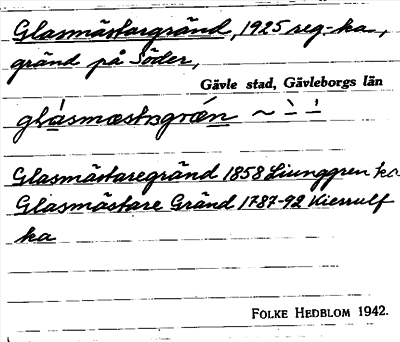 Glasmästargränd, 1925 reg-ka.,
gränd på Söder,
Gävle stad, Gävleborgs län
Glasmästaregränd 1858 Ljunggren ka
Glasmästare Gränd 1787-92 Kierrulf
ka
FOLKE HEDBLOM 1942.